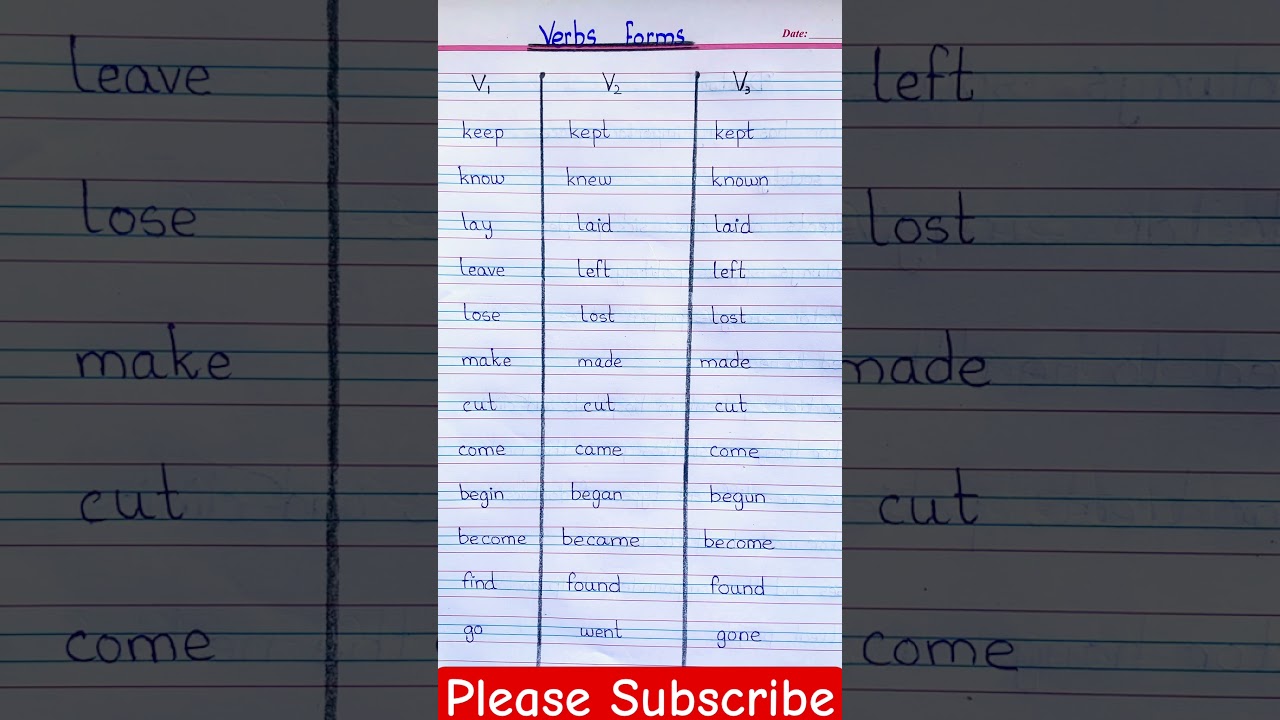 Verbs forms
Date:
V₁ V₂ V₃
keep kept kept
know knew known
lay laid laid
leave left left
lose lost lost
make made made
cut cut cut
come came come
begin began begun
become became become
find found found
go went gone
Please Subscribe
leave left
lose lost
make made
cut cut
come come